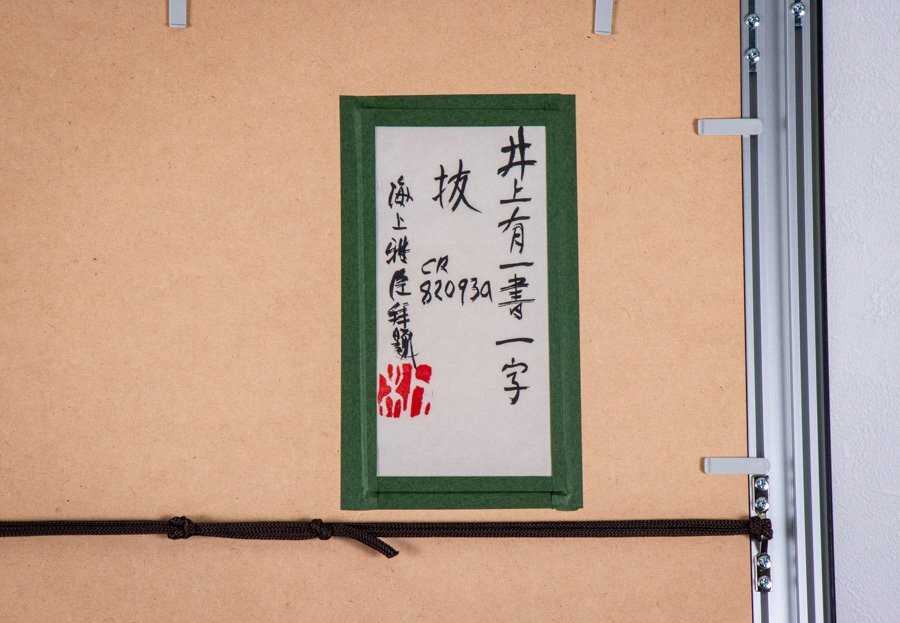 井上有一書 一字
抜
CR
82093a
海上雅臣拜題